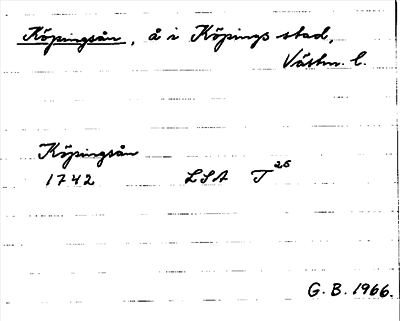 Köpingsån, å i Köpings stad,
Västm. l.
Köpingsån
1742 LSA T 26
G. B. 1966.